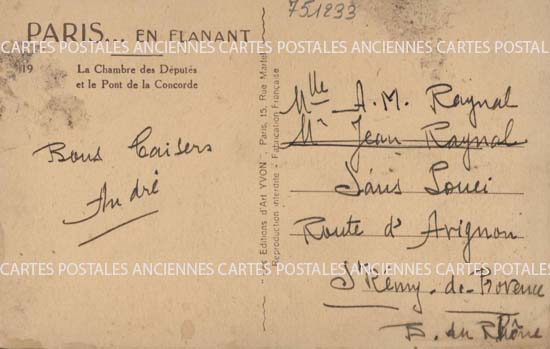 751233
PARIS... EN FLANANT
CARTES POSTALES ANCIENNES CARTES POSTALES ANCIENNES CARTES POSTALES ANCIENNES
19
La Chambre des Députés
et le Pont de la Concorde
Bons Baisers
André
Editions d'Art YVON - Paris, 15, Rue Martel
Reproduction interdite - Fabrication Française
Mlle A. M. Raynal
Mr Jean Raynal
Sans Souci
Route d'Avignon
CARTES POSTALES ANCIENNES CARTES POSTALES ANCIENNES CARTES POSTALES ANCIENNES
St Rémy-de-Provence
B. du Rhône